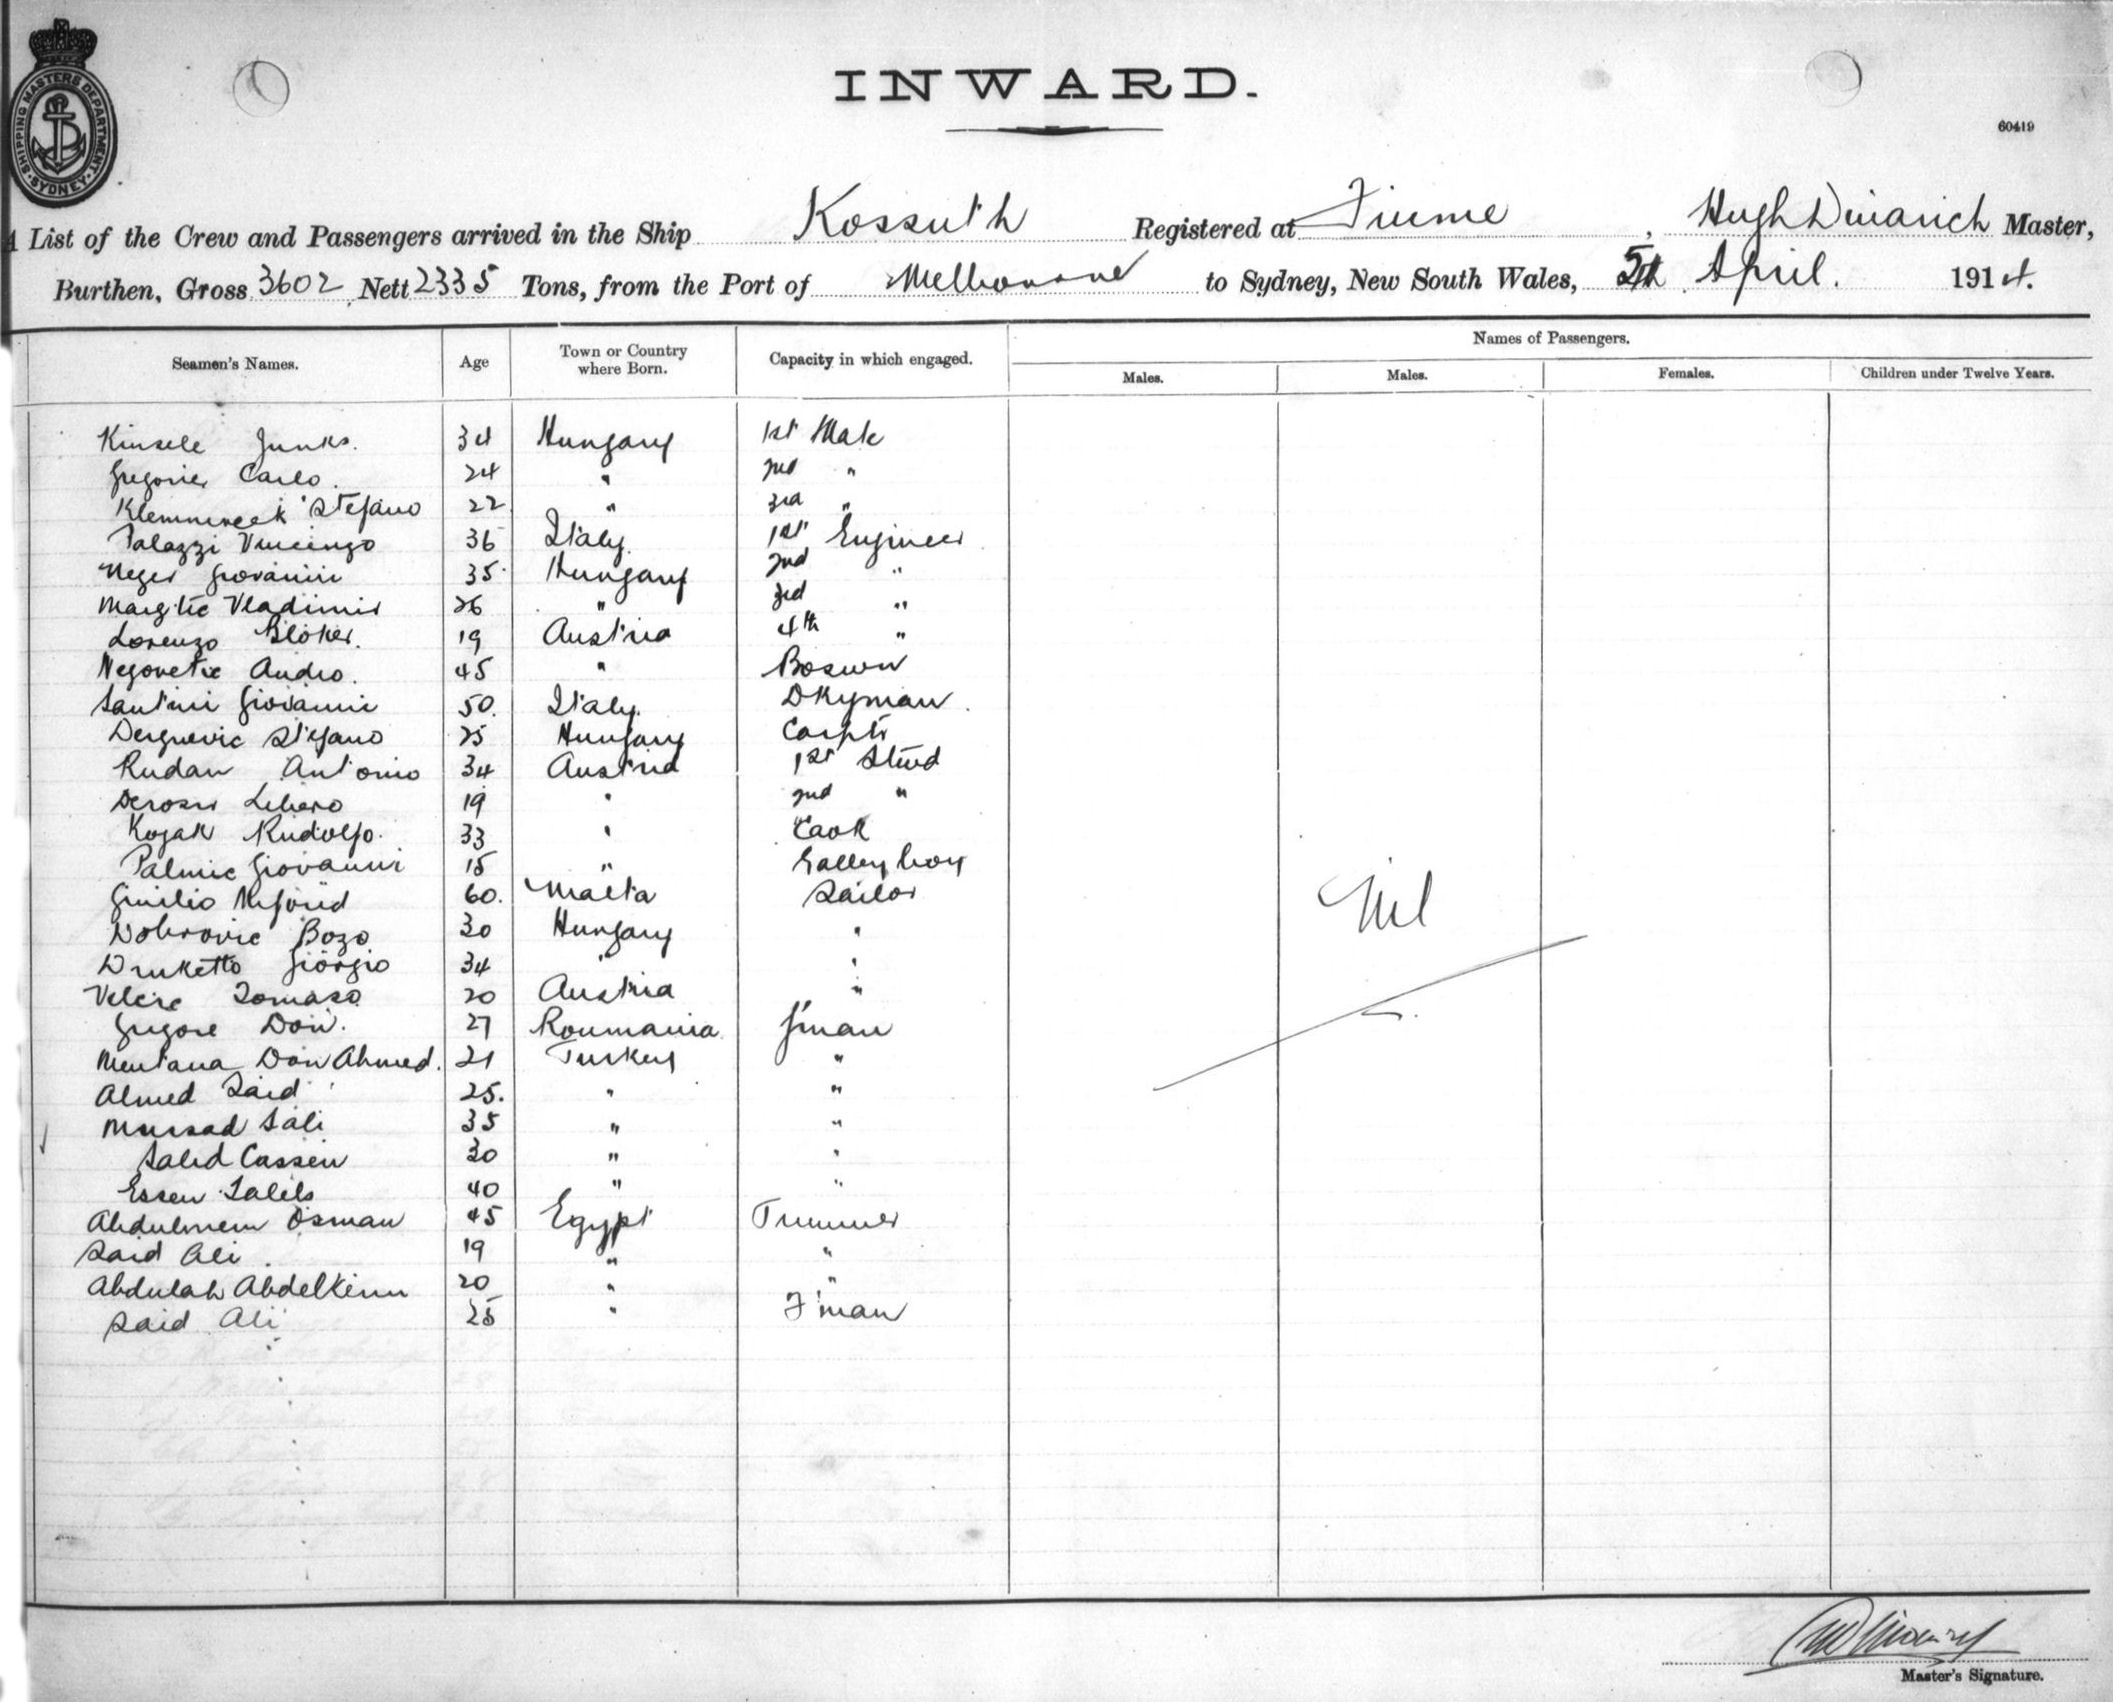 SHIPPING MASTERS DEPARTMENT. SYDNEY.
INWARD.
60419
A List of the Crew and Passengers arrived in the Ship Kossuth Registered at Fiume, Hugh Dinarich Master,
Burthen, Gross 3602 Nett 2335 Tons, from the Port of Melbourne to Sydney, New South Wales, 5th April. 1914.
Seamen's Names. Age Town or Country where Born. Capacity in which engaged. Names of Passengers.
Males. Males. Females. Children under Twelve Years.
Kinsele Junks. 34 Hungary 1st Mate
Gregorier Carlo. 24 " 2nd "
Klemnceek Stefano 22 " 3rd "
Palazzi Vincenzo 36 Italy 1st Engineer
Neger Giovanni 35 Hungary 2nd "
Margitic Vladimir 26 " 3rd "
Lorenzo Bloker. 19 Austria 4th "
Negovetic Andro. 45 " Boswn
Santini Giovanni 50. Italy. Dkyman.
Dergnevic Stefano 25 Hungary Carptr
Rudan Antonio 34 Austria 1st Stwd
Derossi Libero 19 " 2nd "
Kozak Rudolfo. 33 " Cook
Palmic Giovanni 15 " Galley boy
60. Malta Sailor
Dobrovic Bozo 30 Hungary "
Druketto Giorgio 34 " "
Velcic Tomaso 20 Austria "
Grigore Don. 27 Roumania f'man
Mentana Don Ahmed. 21 Turkey "
Ahmed Said 25. " "
Mursad Sali 35 " "
Salid Cassen 30 " "
Essen Salels 40 " "
Abdulmem Osman 45 Egypt Trimmer
Said Ali. 19 " "
Abdulah Abdelkerim 20 " "
Said Ali 25 " F'man
Nil
Master's Signature.